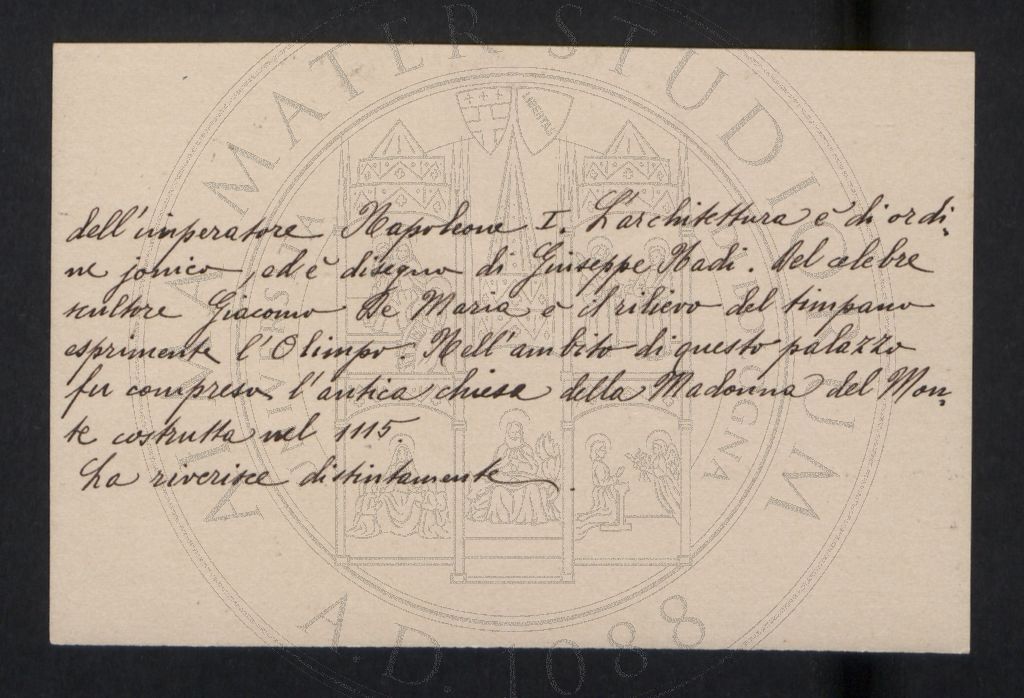 dell'imperatore Napoleone I. L'architettura è di ordi-
ne jonico, ed è disegno di Giuseppe Nadi. Del celebre
scultore Giacomo De Maria è il rilievo del timpano
esprimente l'Olimpo. Nell'ambito di questo palazzo
fu compresa l'antica chiesa della Madonna del Mon-
te costrutta nel 1115.
La riverisce distintamente.
ALMA MATER STUDIORUM
A.D. 1088
LIBERTAS